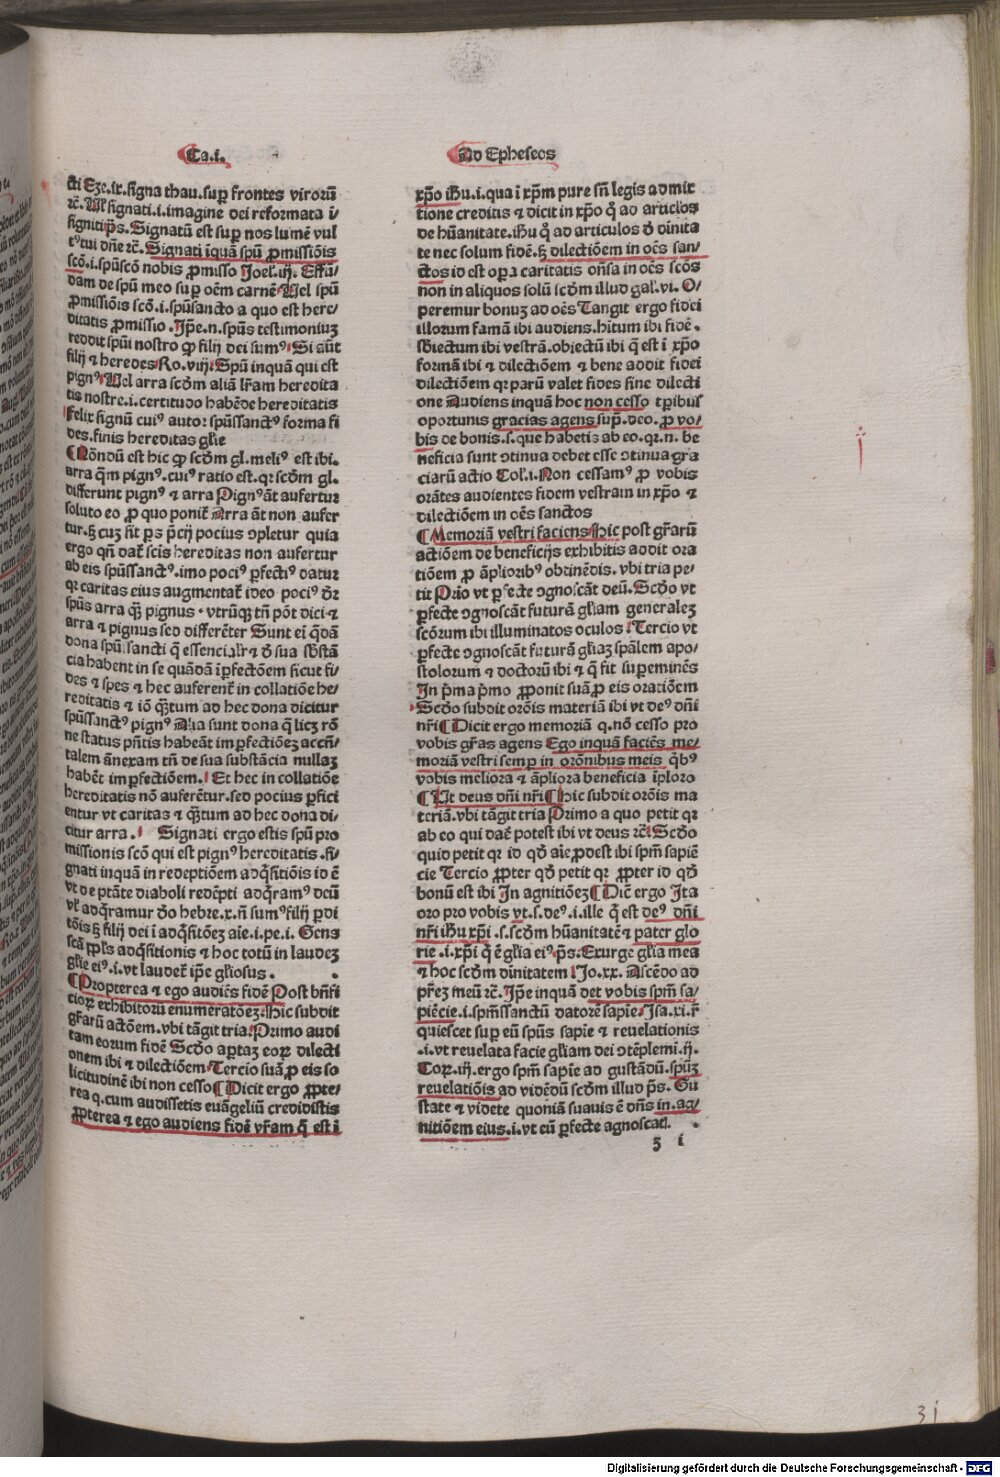 Ca.i.
cti Eze.ix. signa thau.sup̱ frontes virorū
rc̄. Uľ signati.i.imagine dei reformata ī
signiti p̄s. Signatū est sup̱ nos lumē vul
tꝰ tui dñe rc̄. Signati īquā spū ꝓmissiōis
scō.i.spūscō nobis ꝓmisso Joeľ.ij. Effū/
dam de spū meo sup̱ oēm carnē Uel spū
ꝓmissiōis scō.i.spūsancto a quo est here/
ditatis ꝓmissio. Ip̄e.n.spūs testimoniuꝫ
reddit spūi nostro ꝙ filij dei sumꝰ Si aūt
filij ⁊ heredes Ro.viij. Spū inquā qui est
pignꝰ Uel arra scd̄m aliā lr̄am heredita
tis nostre.i.certitudo habēde hereditatis
Felix signū cuiꝰ autor spūssanctꝰ forma fi
des.finis hereditas glīe
¶Nōndū est hic ꝙ scd̄m gl.meliꝰ est ibi.
arra q̄m pignꝰ.cuiꝰ ratio est.qꝛ scd̄m gl.
differunt pignꝰ ⁊ arra Pignꝰ āt aufertur
soluto eo ꝓ quo ponit̄ Arra āt non aufer
tur.ꝫ cuꝫ sit p̱s p̄cij pocius ↄpletur quia
ergo qn̄ dat̄ scīs hereditas non aufertur
ab eis spūssanctꝰ.imo pociꝰ p̱fectiꝰ datur
qꝛ caritas eius augmentat̄ ideo pociꝰ d̄r
spūs arra q̄ꝫ pignus. vtrūqꝫ tn̄ pōt dici ⁊
arra ⁊ pignus sed differēter Sunt eī q̄dā
dona spū sancti q̄ essencialr̄ ⁊ d̄ sua sb̄stā
cia habent in se quādā īp̱fectōem sicut fi/
des ⁊ spes ⁊ hec auferent̄ in collatiōe he/
reditatis ⁊ iō q̄ꝫtum ad hec dona dicitur
spūssanctꝰ pignꝰ Alia sunt dona q̄ licꝫ rō
ne status pn̄tis habeāt imp̱fectiōeꝫ accn̄/
talem ānexam tn̄ de sua substācia nullaꝫ
habēt imp̱fectiōem. Et hec in collatiōe
hereditatis nō auferētur.sed pocius p̱fici
entur vt caritas ⁊ q̄ꝫtum ad hec dona di/
citur arra. Signati ergo estis spū pro
missionis scō qui est pignꝰ hereditatis.si/
gnati inquā in redeptiōem adq̄sitiōis id ē
vt de ptāte diaboli redēpti adq̄ramꝰ deū
vľ adq̄ramur dō hebre.x.n̄ sumꝰ filij p̱di
tōis ꝫ filij dei ī adq̄sitōeꝫ aīe.i.pe.i. Gens
scā ppl̄s adq̄sitionis ⁊ hoc totū in laudeꝫ
glīe eiꝰ.i.vt laudet̄ ip̄e gl̄iosus.
¶Propterea ⁊ ego audiēs fidē Post bn̄fi
cioꝝ exhibitorū enumeratōeꝫ. Hic subdit
gr̄arū actōem.vbi tāgit tria. Primo audi
tam eorum fidē Scd̄o ap̱taꝫ eoꝝ dilecti
onem ibi ⁊ dilectiōem Tercio suā ꝓ eis so
licitudinē ibi non cesso ¶Dicit ergo ꝓpte/
rea q.cum audissetis euāgeliū credidistis
ꝓpterea ⁊ ego audiens fidē vr̄am q̄ est ī
Ad Epheseos
xp̄o ih̄u.i.qua ī xp̄m pure sn̄ legis admix
tione creditis ⁊ dicit in xp̄o q̄ ad articlos
de hūanitate.ih̄u q̄ ad articulos d̄ diuīta
te nec solum fidē.ꝫ dilectiōem in oēs san/
ctos id est op̱a caritatis on̄sa in oēs scōs
non in aliquos solū scd̄m illud gaľ.vi. O/
peremur bonuꝫ ad oēs Tangit ergo fidei
illorum famā ibi audiens.hitum ibi fidē.
sb̄iectum ibi vestrā.obiectū ibi q̄ est ī xp̄o
formā ibi ⁊ dilectiōem ⁊ bene addit fidei
dilectiōem qꝛ parū valet fides sine dilecti
one Audiens inquā hoc non cesso tp̱ibus
oportunis gracias agens sup̱.deo.ꝓ vo/
bis de bonis.s.que habetis ab eo.qꝛ.n.be
neficia sunt ↄtinua debet esse ↄtinua gra
ciarū actio Coľ.i.Non cessamꝰ ꝓ vobis
orātes audientes fidem vestram in xp̄o ⁊
dilectiōem in oēs sanctos
¶Memoriā vestri faciens Hic post gr̄arū
actiōem de beneficijs exhibitis addit ora
tiōem ꝓ āpliorībꝰ obtinēdis.vbi tria pe/
tit Prīo vt p̱fecte ↄgnoscāt deū. Scd̄o vt
p̱fecte ↄgnoscāt futurā gl̄iam generaleꝫ
scōrum ibi illuminatos oculos Tercio vt
p̱fecte ↄgnoscāt futurā gl̄iaꝫ spālem apo/
stolorum ⁊ doctorū ibi ⁊ q̄ sit sup̱eminēs
In p̄ma p̄mo ꝓponit suā ꝓ eis oratiōem
Scd̄o subdit orōis materiā ibi vt deꝰ dn̄i
nr̄i ¶Dicit ergo memoriā q.nō cesso pro
vobis gr̄as agens Ego inquā faciēs me/
moriā vestri semp̱ in orōnibus meis q̄bꝰ
vobis meliora ⁊ āpliora beneficia īploro
¶Ut deus dn̄i nr̄i ¶Hic subdit orōis ma
teriā.vbi tāgit tria Primo a quo petit qꝛ
ab eo qui dat̄ potest ibi vt deus rc̄ Scd̄o
quid petit qꝛ id qd̄ aīe ꝓdest ibi sp̄m sapiē
cie Tercio ꝓpter qd̄ petit qꝛ ꝓpter id qd̄
bonū est ibi In agnitiōeꝫ ¶Dic̄ ergo Ita
oro pro vobis vt.s.deꝰ.i.ille q̄ est deꝰ dn̄i
nr̄i ih̄u xp̄i.s.scd̄m hūanitatē ⁊ pater glo
rie.i.xp̄i q̄ ē gl̄ia eiꝰ p̄s. Exurge gl̄ia mea
⁊ hoc scd̄m diuinitatem Jo.xx. Ascēdo ad
pr̄eꝫ meū rc̄. Ip̄e inquā det vobis sp̄m sa/
piēcie.i.sp̄mssanctū datorē sapīe. Isa.xi.r̄
quiescet sup̱ eū spūs sapīe ⁊ reuelationis
.i.vt reuelata facie gl̄iam dei ↄtēplemī.ij.
Coꝝ.iij.ergo sp̄m sapīe ad gustādū.spūꝫ
reuelatiōis ad vidēdū scd̄m illud p̄s. Gu
state ⁊ videte quoniā suauis ē dn̄s in.ag/
nitiōem eius.i.vt eū p̱fecte agnoscatī.
ꝫ i
31
Digitalisierung gefördert durch die Deutsche Forschungsgemeinschaft - DFG